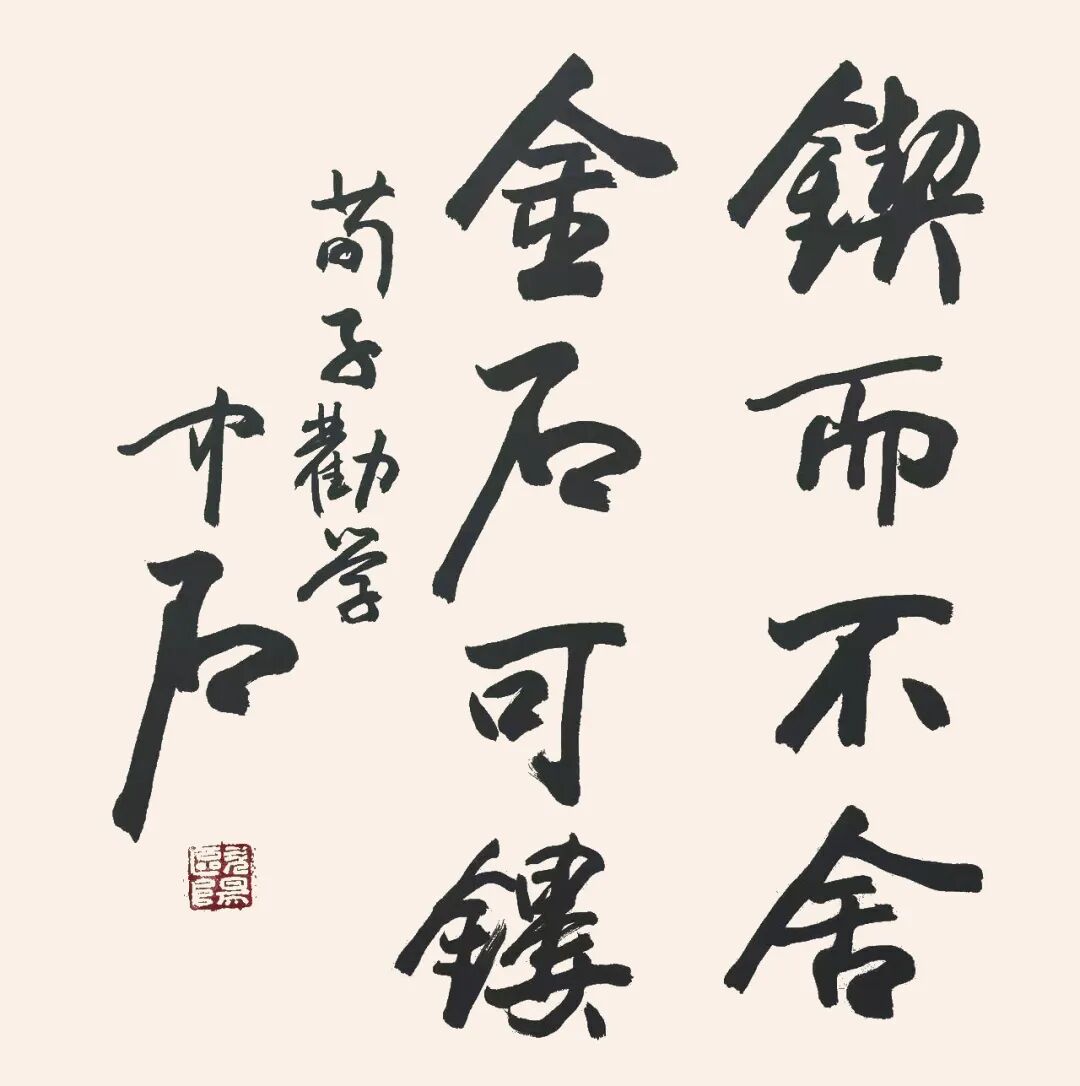 鍥而不舍
金石可鏤
荀子勸学
中石